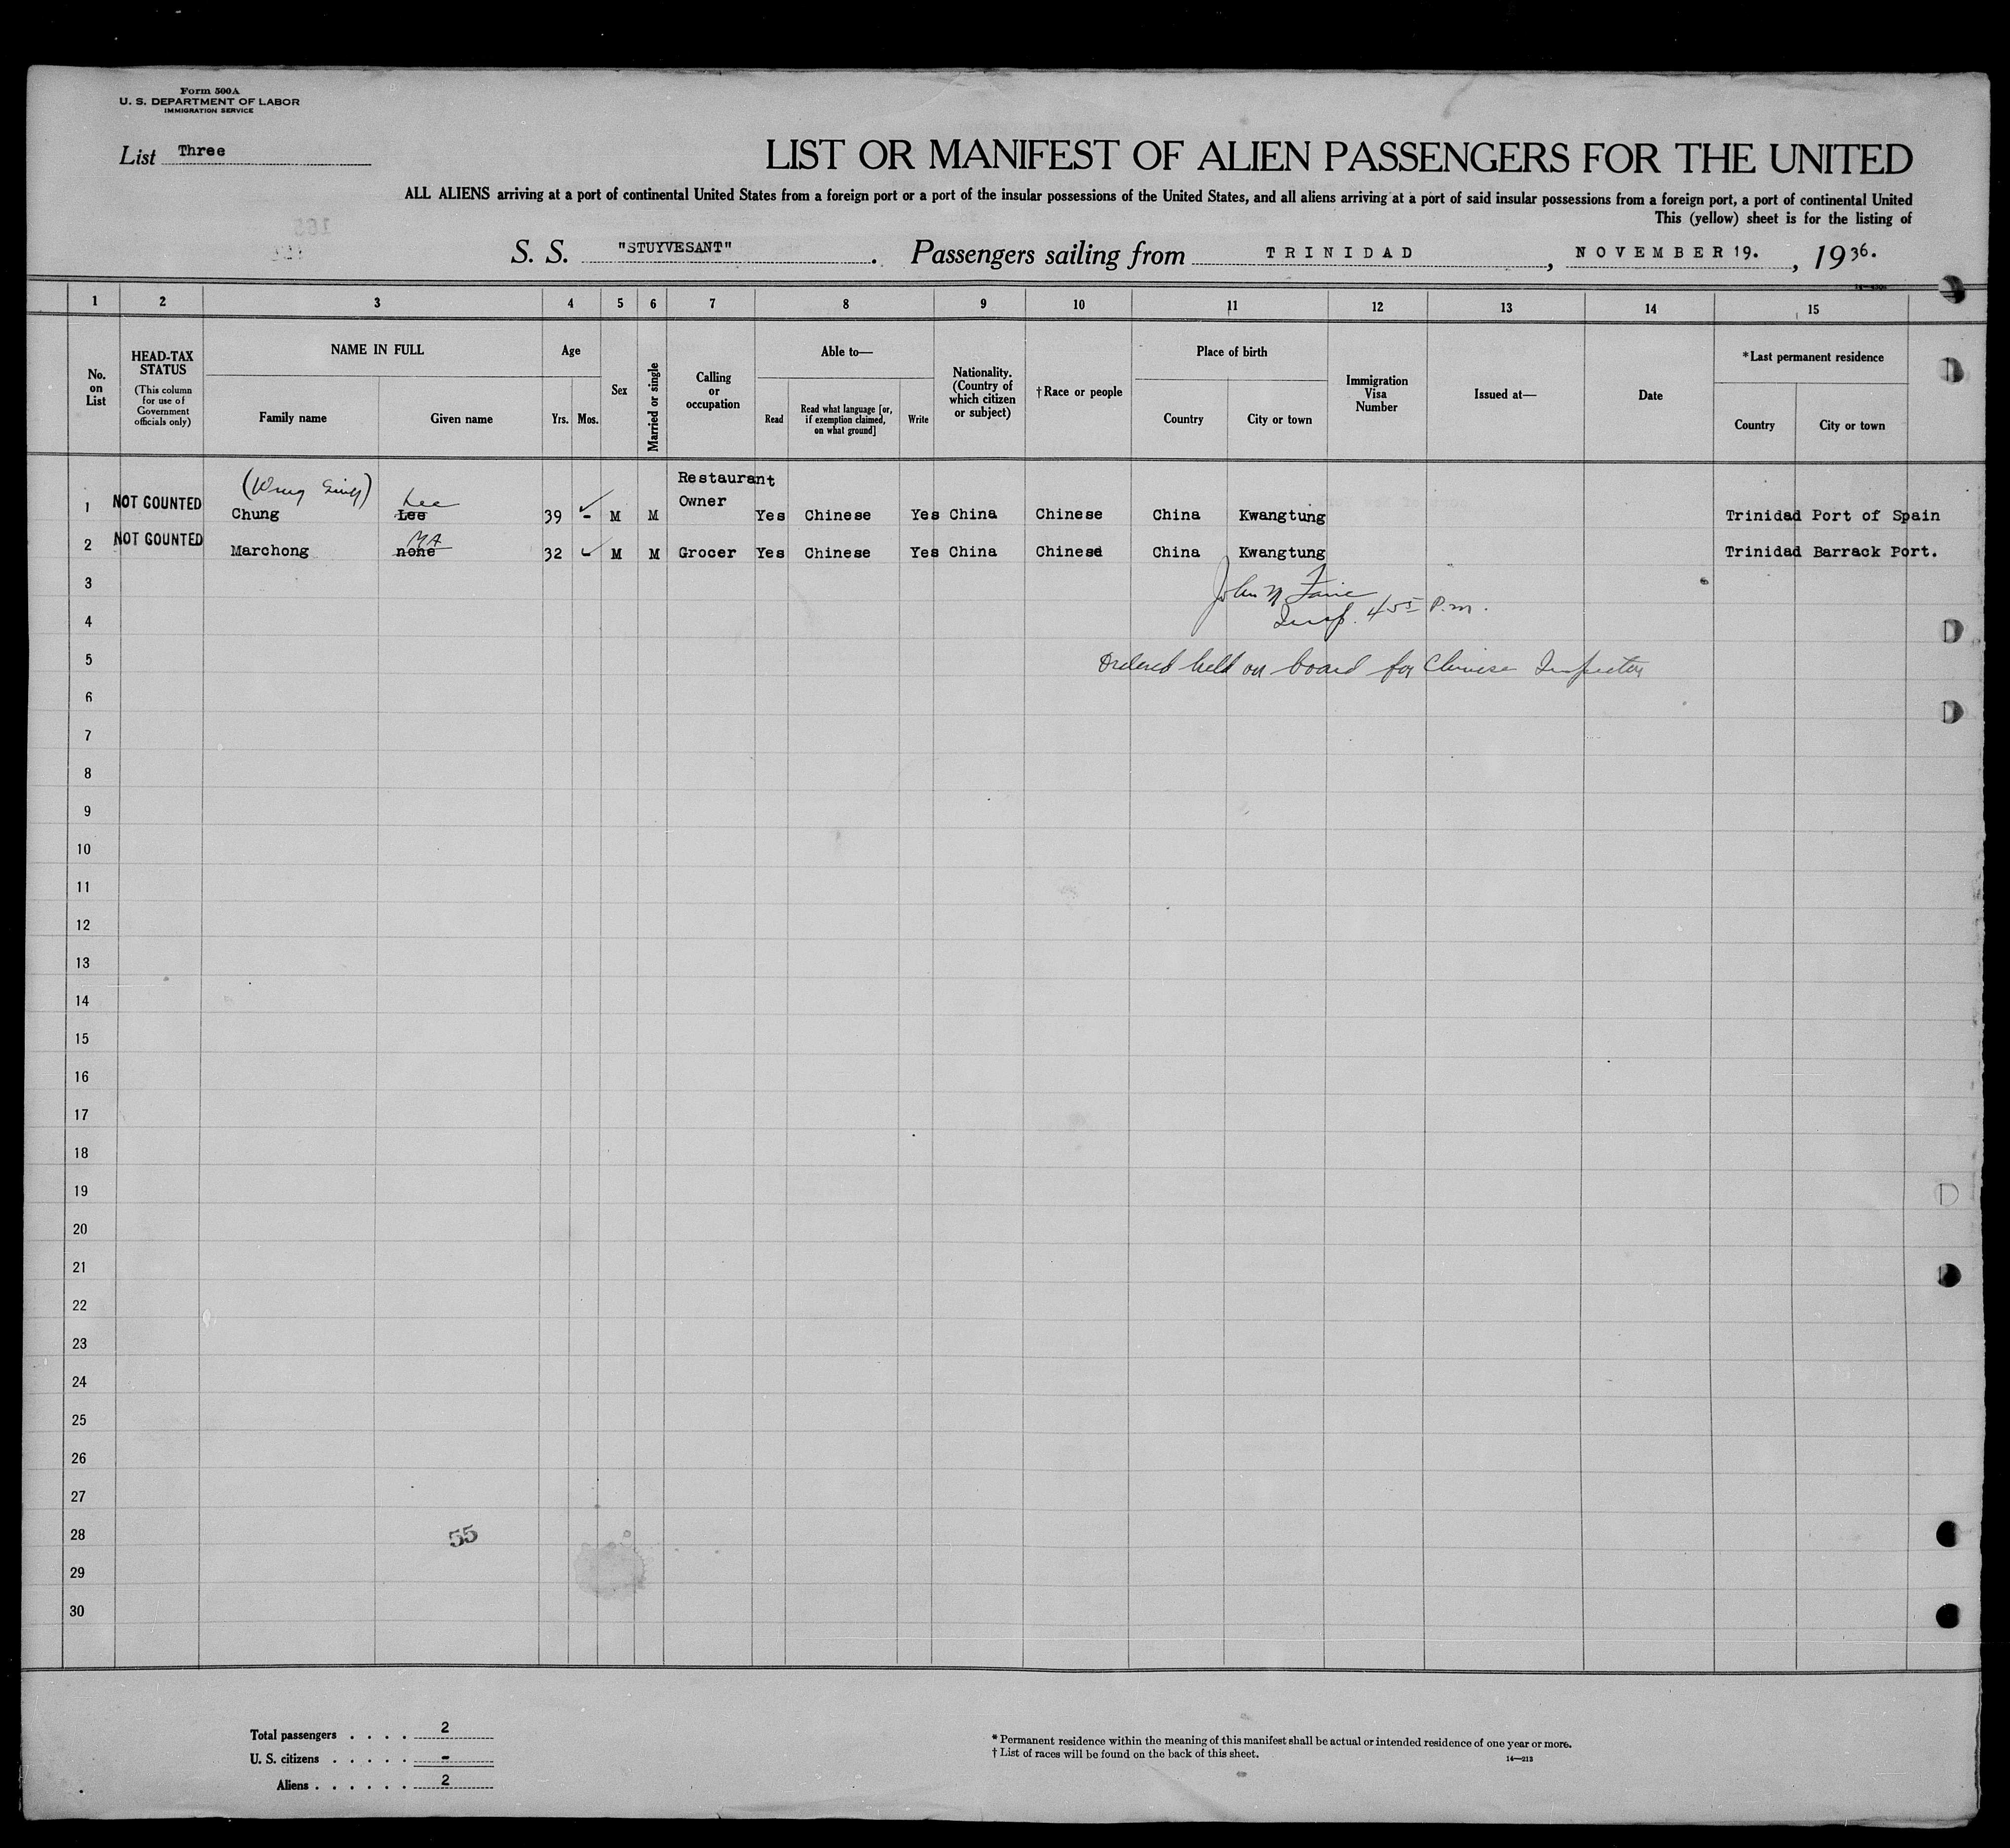 Form 500A
U. S. DEPARTMENT OF LABOR
IMMIGRATION SERVICE
List Three
LIST OR MANIFEST OF ALIEN PASSENGERS FOR THE UNITED
ALL ALIENS arriving at a port of continental United States from a foreign port or a port of the insular possessions of the United States, and all aliens arriving at a port of said insular possessions from a foreign port, a port of continental United
This (yellow) sheet is for the listing of
S. S. "STUYVESANT". Passengers sailing from TRINIDAD, NOVEMBER 19., 1936.
1 2 3 4 5 6 7 8 9 10 11 12 13 14 15
No. on List
HEAD-TAX STATUS
(This column for use of Government officials only)
NAME IN FULL
Family name
Given name
Age
Yrs. Mos.
Sex
Married or single
Calling or occupation
Able to—
Read
Read what language [or, if exemption claimed, on what ground]
Write
Nationality. (Country of which citizen or subject)
†Race or people
Place of birth
Country
City or town
Immigration Visa Number
Issued at—
Date
*Last permanent residence
Country
City or town
1 NOT COUNTED (Wong Sing) Chung Lee Lee 39 - M M Restaurant Owner Yes Chinese Yes China Chinese China Kwangtung Trinidad Port of Spain
2 NOT COUNTED Marchong none MA 32 M M Grocer Yes Chinese Yes China Chinese China Kwangtung Trinidad Barrack Port.
3
John N
4
Insp. 4 55 P.m.
5
Ordered held on board for Chinese Inspector
6
7
8
9
10
11
12
13
14
15
16
17
18
19
20
21
22
23
24
25
26
27
28
55
29
30
Total passengers . . . . 2
U. S. citizens . . . . . -
Aliens . . . . . . 2
* Permanent residence within the meaning of this manifest shall be actual or intended residence of one year or more.
† List of races will be found on the back of this sheet.
14—213